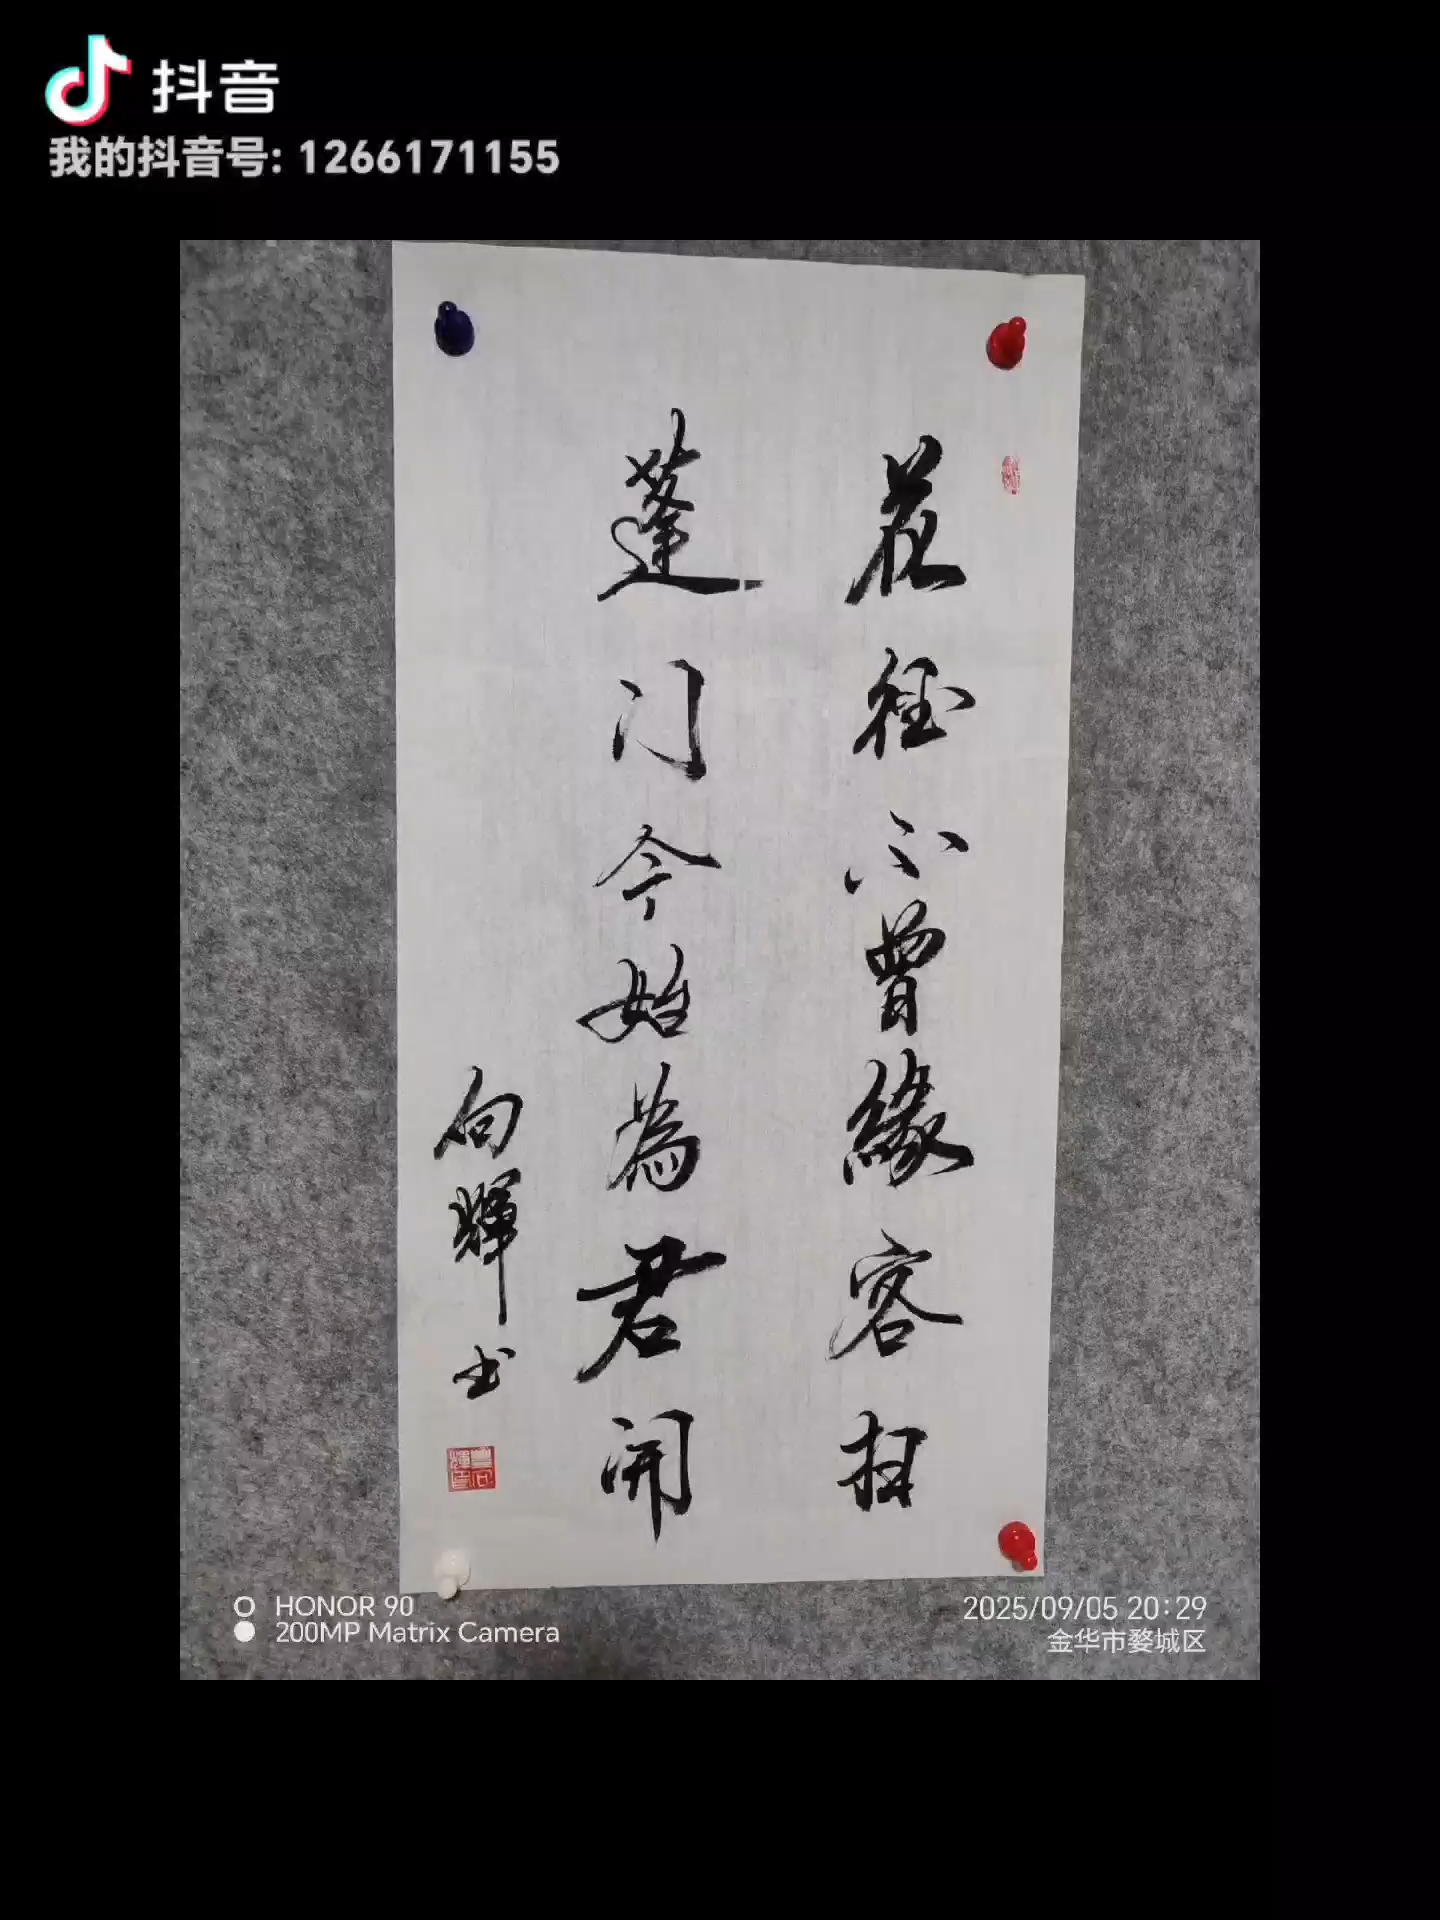 抖音
我的抖音号: 1266171155
花径不曾緣客扫
蓬门今始為君開
向輝书
HONOR 90
200MP Matrix Camera
2025/09/05 20:29
金华市婺城区